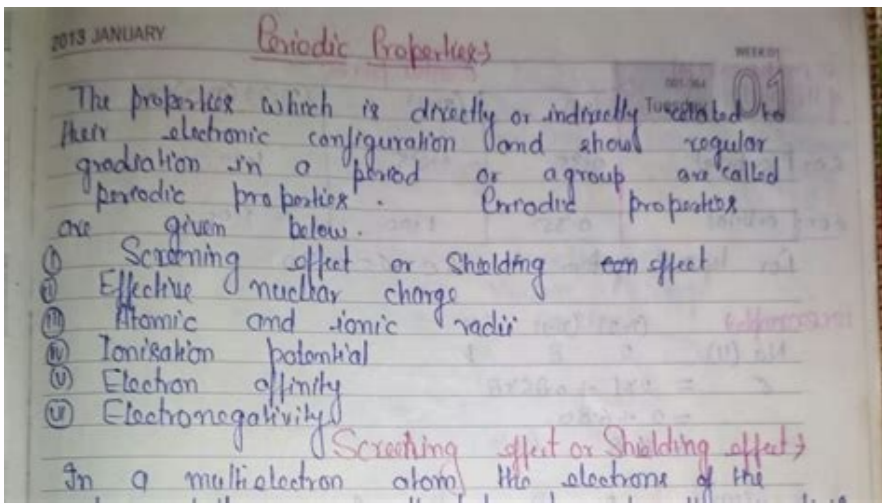 2013 JANUARY
Periodic Properties →
WEEK 01
01
Tuesday
The properties which is directly or indirectly related to
their electronic configuration and show regular
gradiation in a period or a group are called
periodic properties. Periodic properties
are given below.
(i) Screening effect or Shielding effect
(ii) Effective nuclear charge
(iii) Atomic and ionic radii
(iv) Ionisation potential
(v) Electron affinity
(vi) Electronegativity
Screening effect or Shielding effect →
In a multielectron atom, the electrons of the